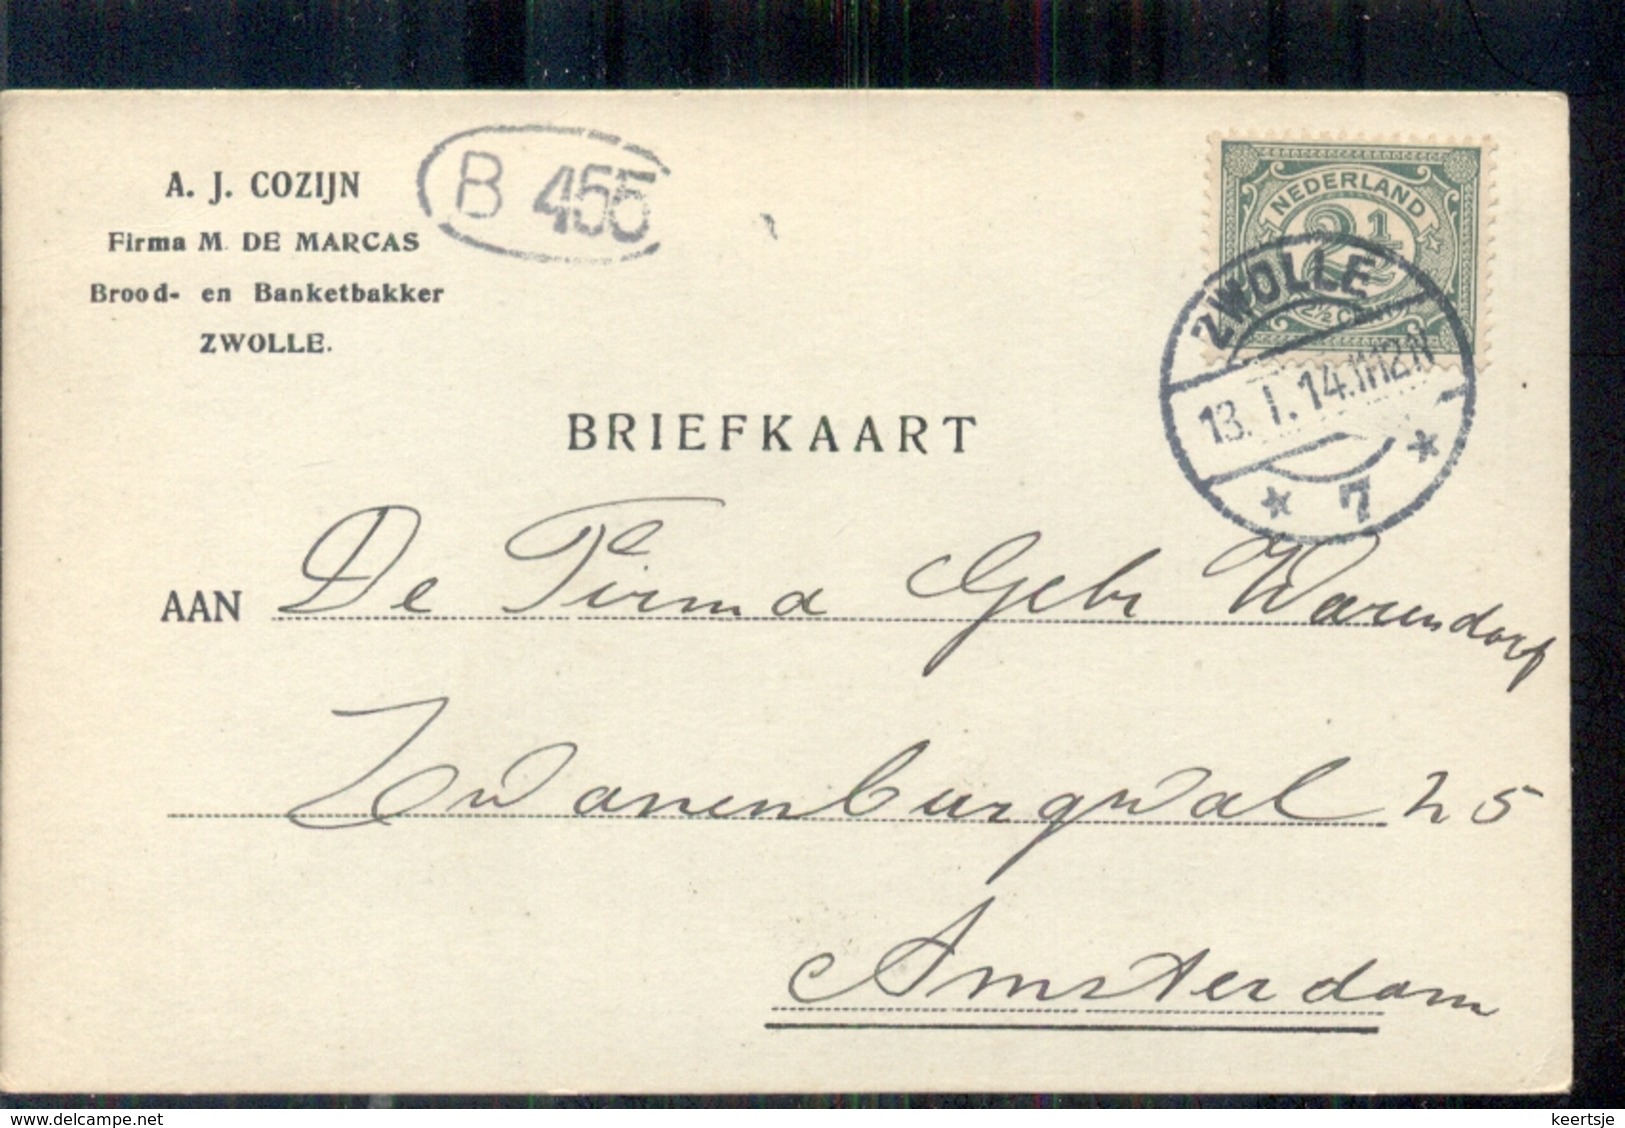 A. J. COZIJN
Firma M. DE MARCAS
Brood- en Banketbakker
ZWOLLE.
B 455
NEDERLAND
2½
2½ CENT
ZWOLLE
13. 1. 14. 11-12
* 7 *
BRIEFKAART
AAN De Firma Gebr Warendorf
Zwanenburgwal 25
Amsterdam
delcampe.net
keertsje